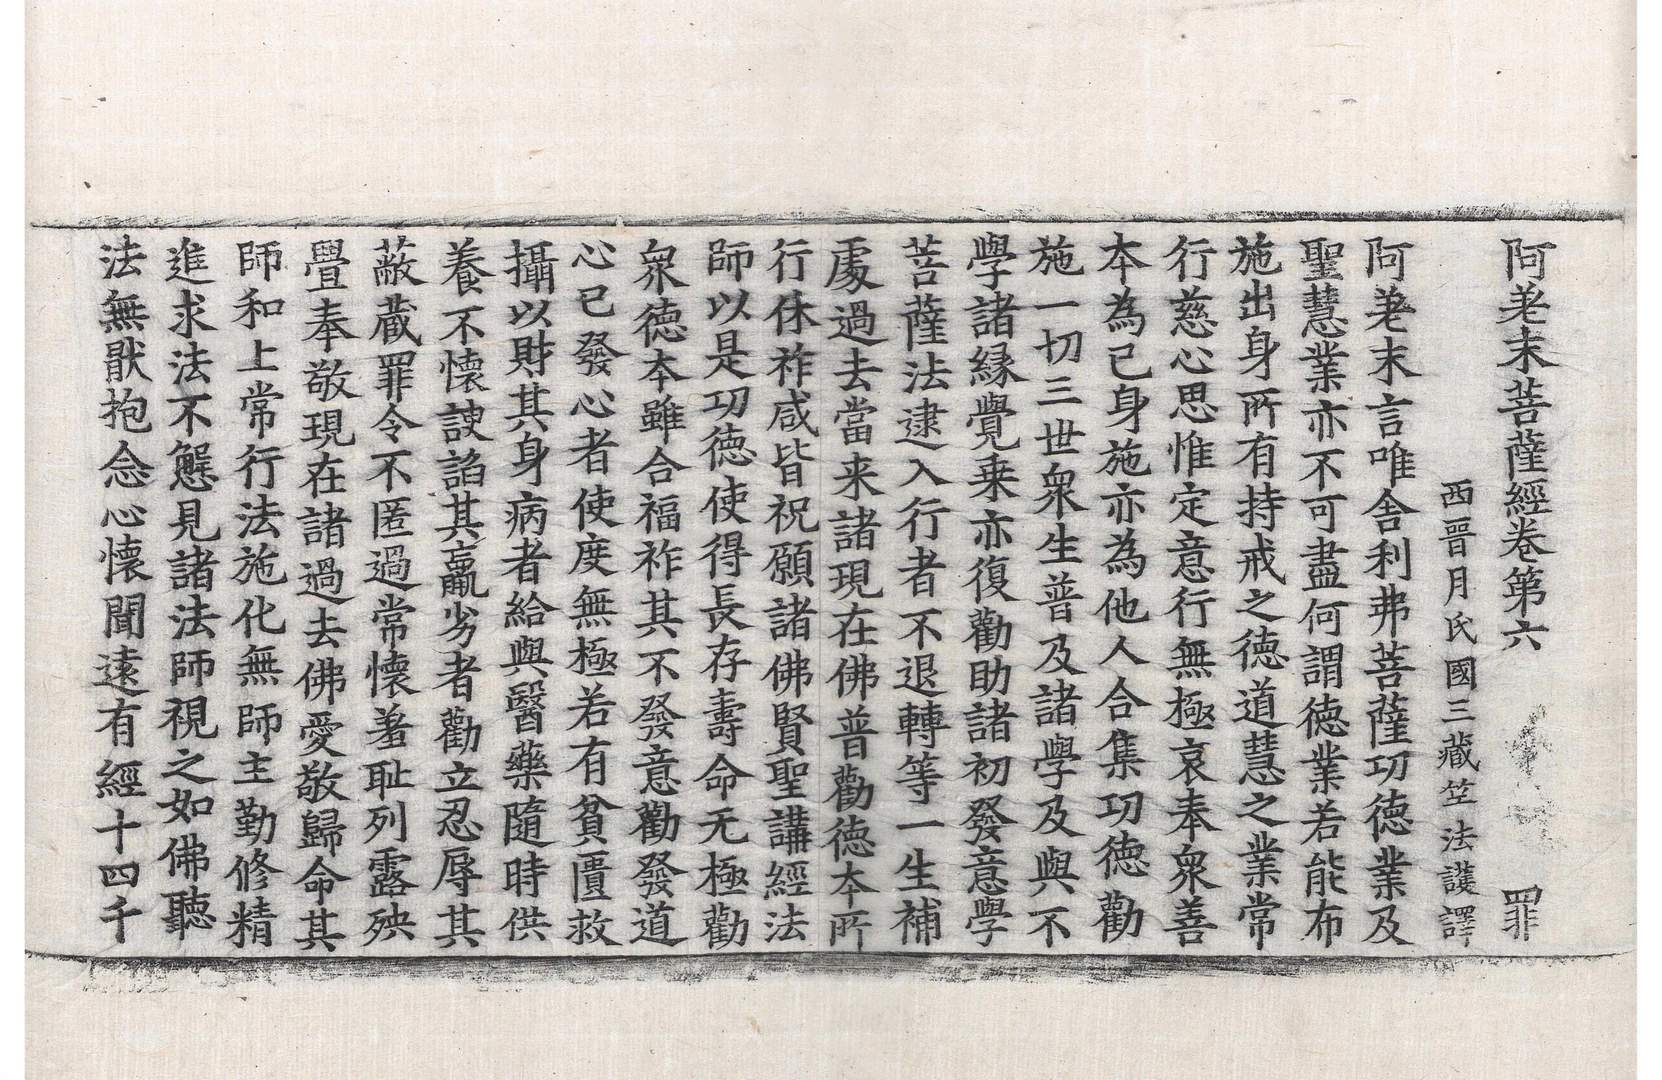 阿差末菩薩經卷第六 罪
西晉月氏國三藏竺法護譯
阿差末言唯舍利弗菩薩功德業及
聖慧業亦不可盡何謂德業若能布
施出身所有持戒之德道慧之業常
行慈心思惟定意行無極哀奉衆善
本為己身施亦為他人合集功德勸
施一切三世衆生普及諸學及與不
學諸縁覺乗亦復勸助諸初發意學
菩薩法逮入行者不退轉等一生補
處過去當来諸現在佛普勸德本所
行休祚咸皆祝願諸佛賢聖講經法
師以是功德使得長存壽命无極勸
衆德本雖合福祚其不發意勸發道
心已發心者使度無極若有貧匱救
攝以財其身病者給與醫藥隨時供
養不懷諛諂其羸劣者勸立忍辱其
蔽藏罪令不匿過常懷羞耻列露殃
舋奉敬現在諸過去佛愛敬歸命其
師和上常行法施化無師主勤修精
進求法不懈見諸法師視之如佛聽
法無猒抱念心懷聞遠有經十四千